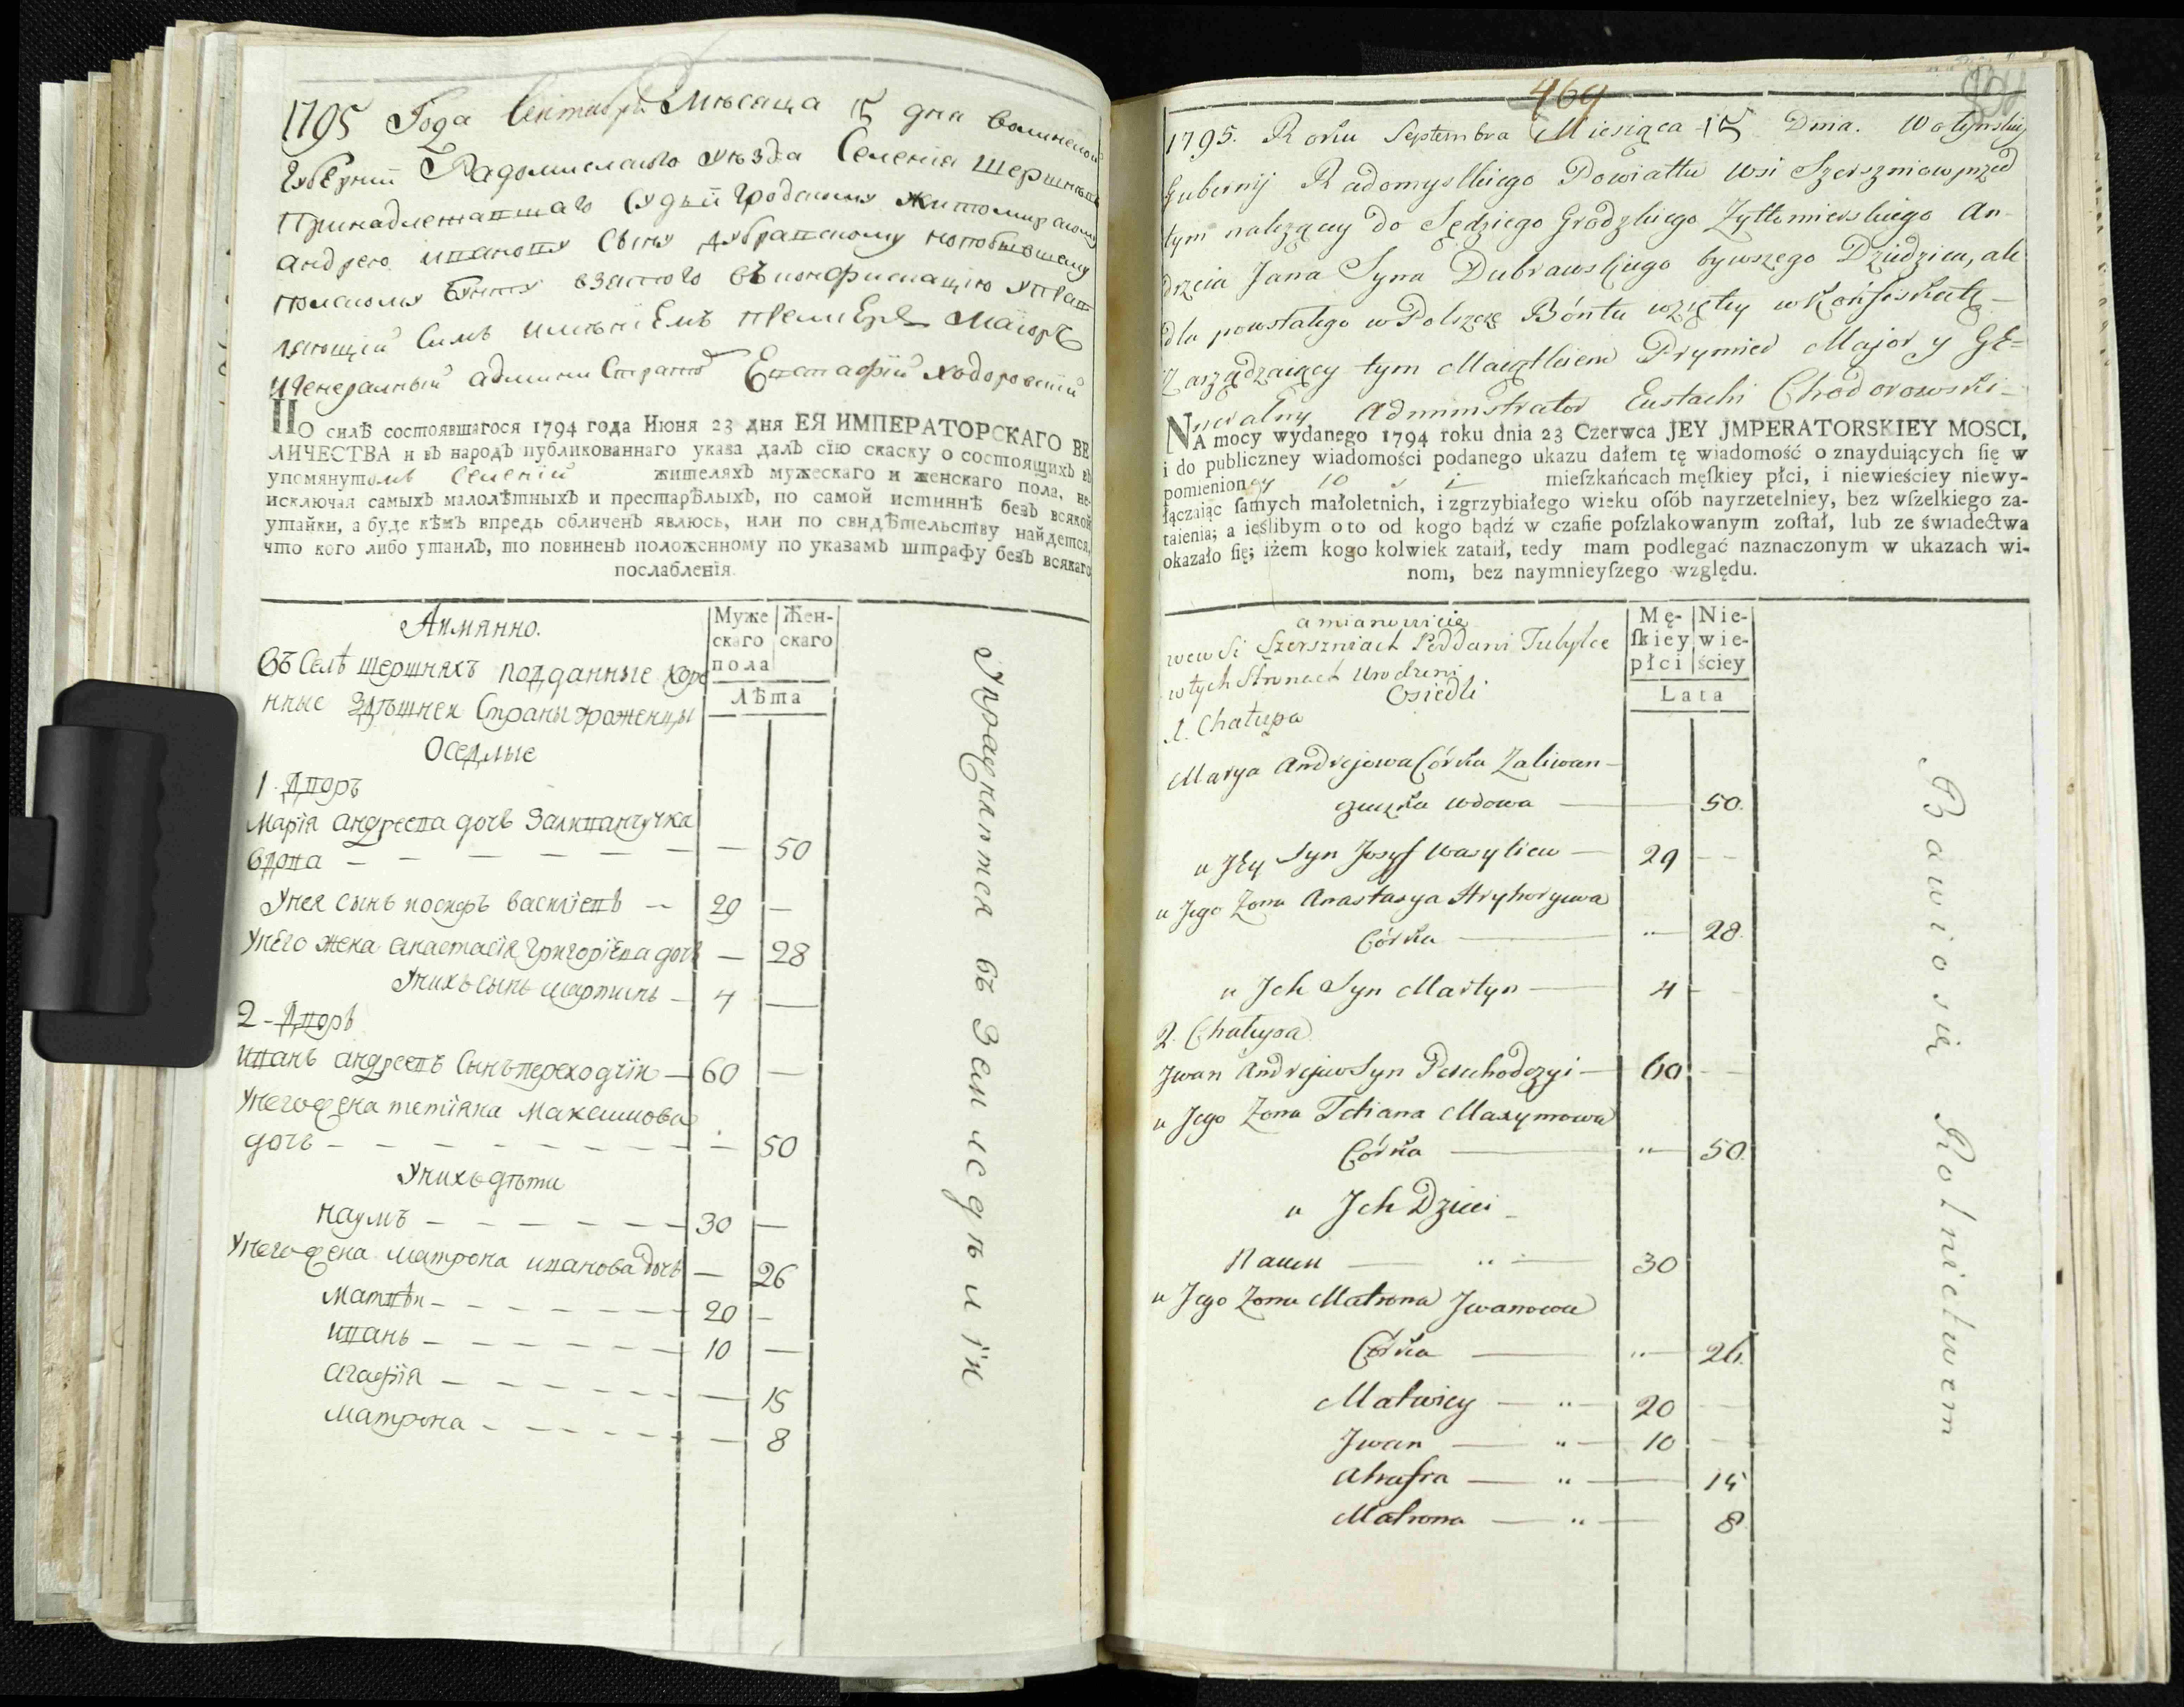 1795 Года Сентября Мѣсяца 15 дня волинской
Губерніи Радомислского уѣзда Селенія Шершньовъ
Принадлежавшаго Судьи гродскому житомирскому
андрею иванову сыну дубравскому по бывшему
полскому бунту взятого въ конфискацію управ
ляющій Симъ имѣніемъ премиеръ Маіоръ
и генералный администраторъ Евстафій ходоровскій
ПО силѣ состоявшагося 1794 года Июня 23 дня ЕЯ ИМПЕРАТОРСКАГО ВЕ
ЛИЧЕСТВА и въ народъ публикованнаго указа далъ сїю скаску о состоящихъ въ
упомянутомъ Селеніи жителяхъ мужескаго и женскаго пола, не
исключая самыхъ малолѣтныхъ и престарѣлыхъ, по самой истиннѣ безъ всякой
утайки, а буде кѣмъ впредь обличенъ явлюсь, или по свидѣтельству найдется,
что кого либо утаилъ, то повиненъ положенному по указамъ штрафу безъ всякаго
послабленїя
Аимянно.
Муже
скаго
пола
Жен-
скаго
Лѣта
въ Селѣ шершняхъ подданные коре
нные здѣшнеи Страны уроженцы
Оседлые
1. Дворъ
Марія андреева дочь Заливанчучка
вдова — 50
Унея сынъ иосифъ василіевъ — 29 —
Унего жена анастасія григоріева дочь — 28
Унихъ сынъ мартинъ — 4 —
2 - Дворъ
иванъ андреевъ Сынъ переходчій — 60 —
Унего жена тетіяна Максимова
дочь — 50
Унихъ дѣти
наумъ — 30 —
Унего жена матрона иванова дочь — 26
матвѣй — 20 —
иванъ — 10 —
агафія — 15
матрона — 8
Упражняется въ Земледѣліи
469
1795. Roku Septembra Miesiąca 15 Dnia. Wołynskiey
Gubernij Radomyslkiego Powiattu Wsi Szerszniow przed
tym nalezący do Sędziego Grodzkiego Zyttomierskiego An-
drzeia Jana Syna Dubrawskiego bywszego Dziedzica, ale
dla powstałego w Polszcze Bóntu wziętey w Konfiskatę —
Zarządzaiący tym Maiątkiem Prymier Major y GE=
neralny Administrator Eustachi Chodorowski —
NA mocy wydanego 1794 roku dnia 23 Czerwca JEY JMPERATORSKIEY MOSCI,
i do publiczney wiadomości podanego ukazu dałem tę wiadomość o znayduiących ſię w
pomienioney w s i mieſzkańcach męſkiey płci, i niewieściey niewy-
łączaiąc ſamych małoletnich, i zgrzybiałego wieku oſób nayrzetelniey, bez wſzelkiego za-
taienia; a ieślibym o to od kogo bądź w czaſie poſzlakowanym zoſtał, lub ze świadectwa
okazało ſię; iżem kogo kolwiek zataił, tedy mam podlegać naznaczonym w ukazach wi-
nom, bez naymnieyſzego względu.
amianowicie
Mę-
ſkiey
płci
Nie-
wie-
ściey
Lata
wewsi Szerszniach Poddani Tubylce
wtych Stronach Urodzeni
Osiedli
1. Chałupa
Marya Andrejowa Córka Zaliwan-
czuczka wdowa — 50.
u Jey Syn Jozyf Wasyliew — 29 - -
u Jego Zona Anastasya Hryhorjewa
Córka — " 28.
u Jch Syn Martyn — 4 - -
2. Chałupa
Jwan Andrejew Syn Perechodczyi — 60 - -
u Jego Zona Tetiana Maxymowa
Córka — " 50.
u Jch Dzieci
Naum — " — 30
u Jego Zona Matrona Jwanowa
Córka — " 26.
Matwiey — " — 20 —
Jwan — " — 10 —
Ahafia — " — 15
Matrona — " — 8
Bawio sie Rolnictwem